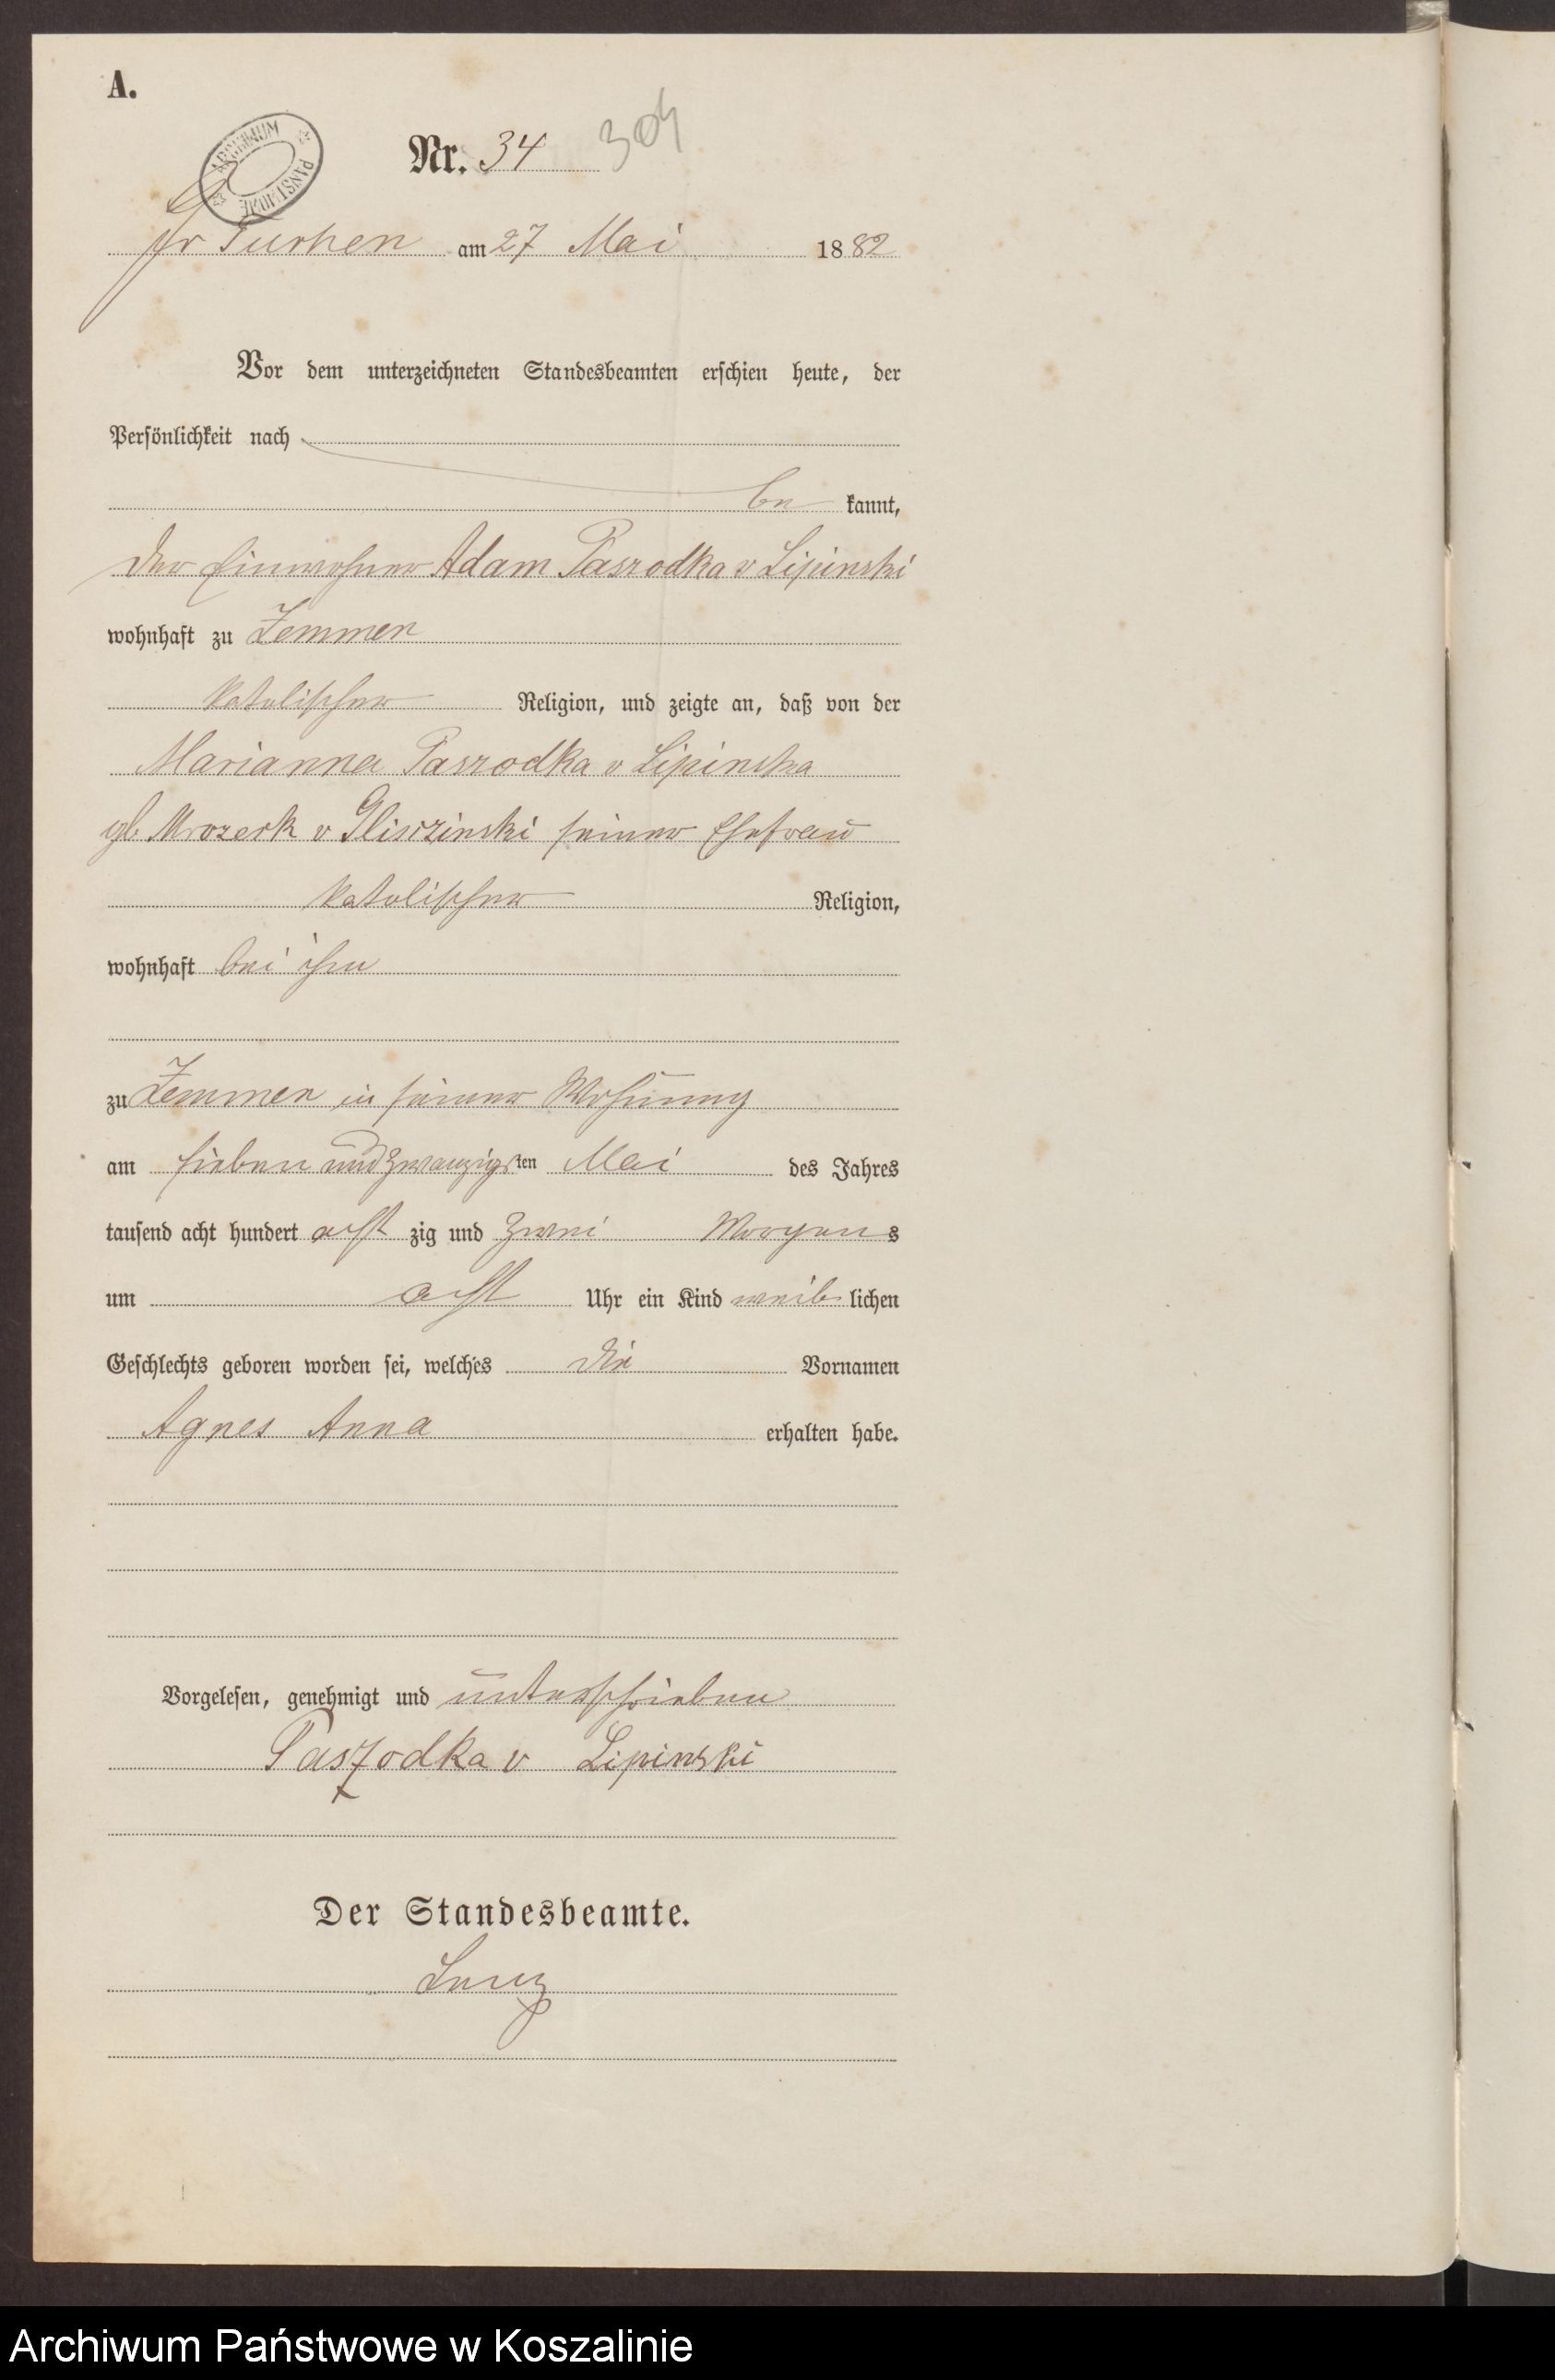 A.
ARCHIWUM PAŃSTWOWE
Nr. 34 304
Gr Tuchen am 27 Mai 1882
Vor dem unterzeichneten Standesbeamten erschien heute, der
Persönlichkeit nach
be kannt,
der Einwohner Adam Paszodka v Lipinski
wohnhaft zu Zemmen
katolischer Religion, und zeigte an, daß von der
Marianna Paszodka v Lipinska
gb. v Glisczinski seiner Ehefrau
katolischer Religion,
wohnhaft bei ihm
zu Zemmen in seiner Wohnung
am sieben und zwanzigsten Mai des Jahres
tausend acht hundert acht zig und zwei Morgens
um acht Uhr ein Kind weiblichen
Geschlechts geboren worden sei, welches die Vornamen
Agnes Anna erhalten habe.
Vorgelesen, genehmigt und unterschrieben
Paszodka v Lipinski
Der Standesbeamte.
Archiwum Państwowe w Koszalinie